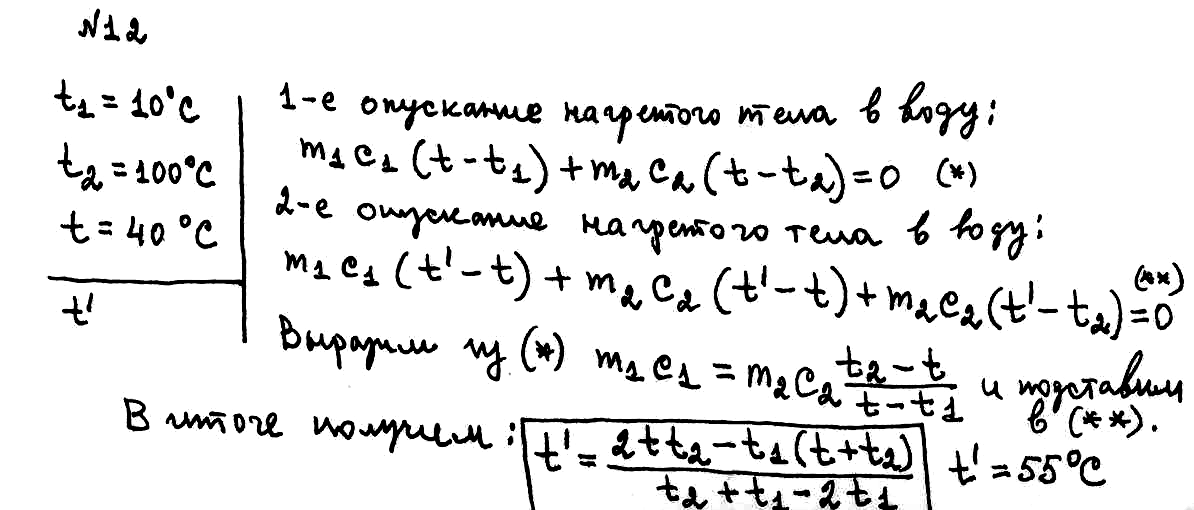 N12
t₁ = 10°C
t₂ = 100°C
t = 40 °C
t'
1-е опускание нагретого тела в воду:
m₁ c₁ (t - t₁) + m₂ c₂ (t - t₂) = 0 (*)
2-е опускание нагретого тела в воду:
m₁ c₁ (t' - t) + m₂ c₂ (t' - t) + m₂ c₂ (t' - t₂) = 0 (**)
Выразим из (*) m₁ c₁ = m₂ c₂ (t₂ - t)/(t - t₁) и подставим
в (**).
В итоге получаем: t' = (2 t t₂ - t₁ (t + t₂))/(t₂ + t₁ - 2 t₁) t' = 55°C